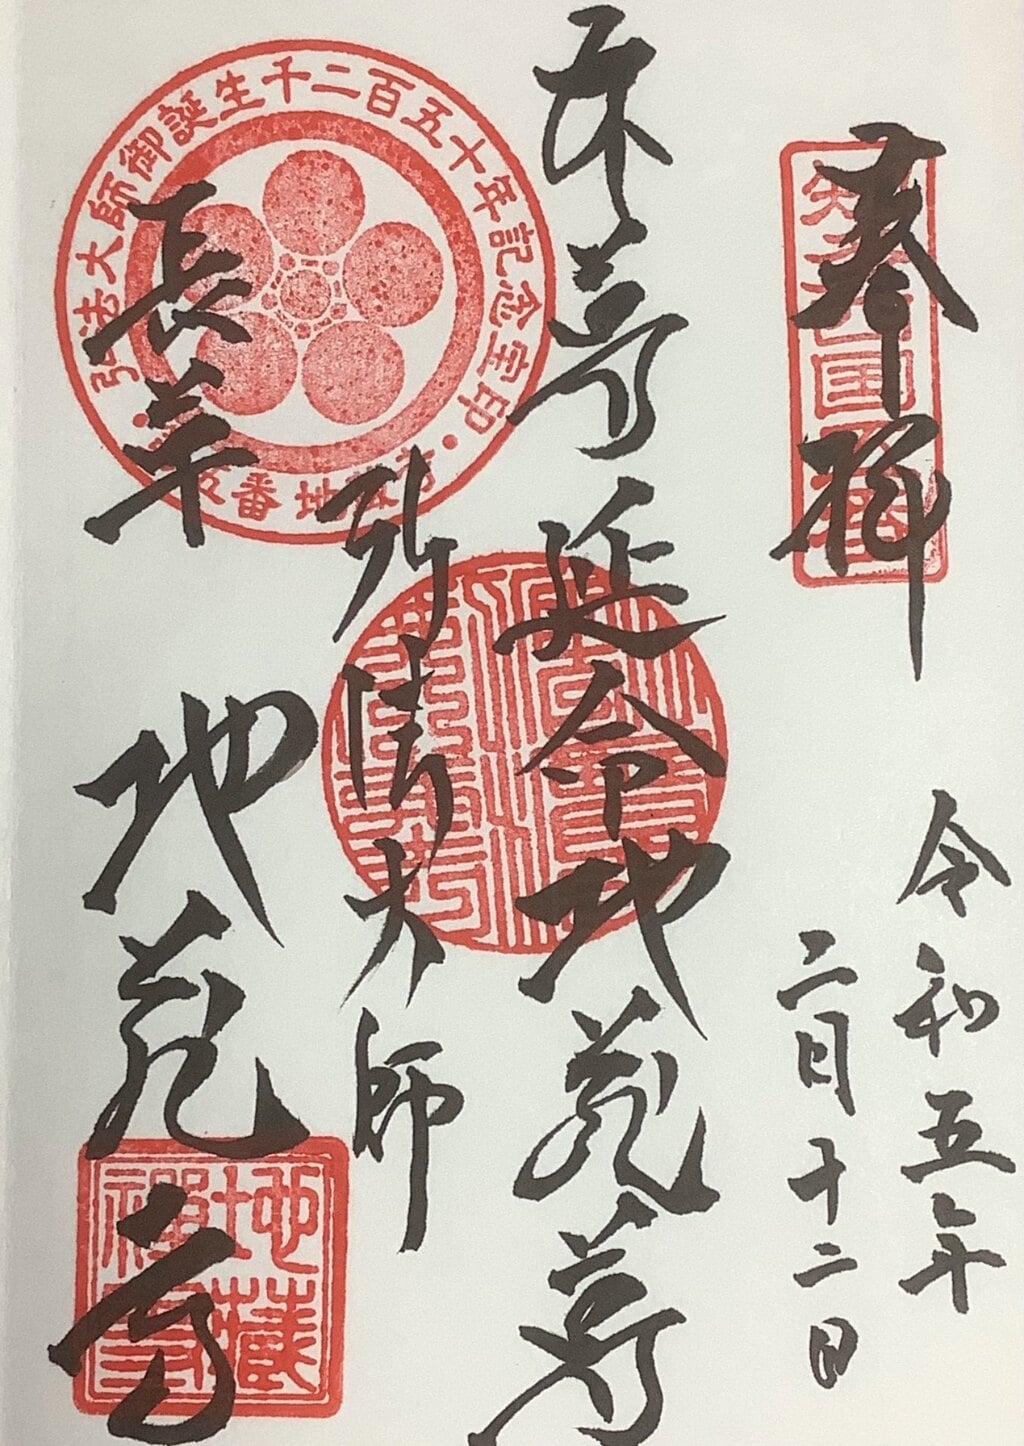 奉拝
令和五年
二月十二日
本尊延命地蔵尊
弘法大師
長草 地蔵寺
弘法大師御誕生千二百五十年記念宝印
地藏禪寺